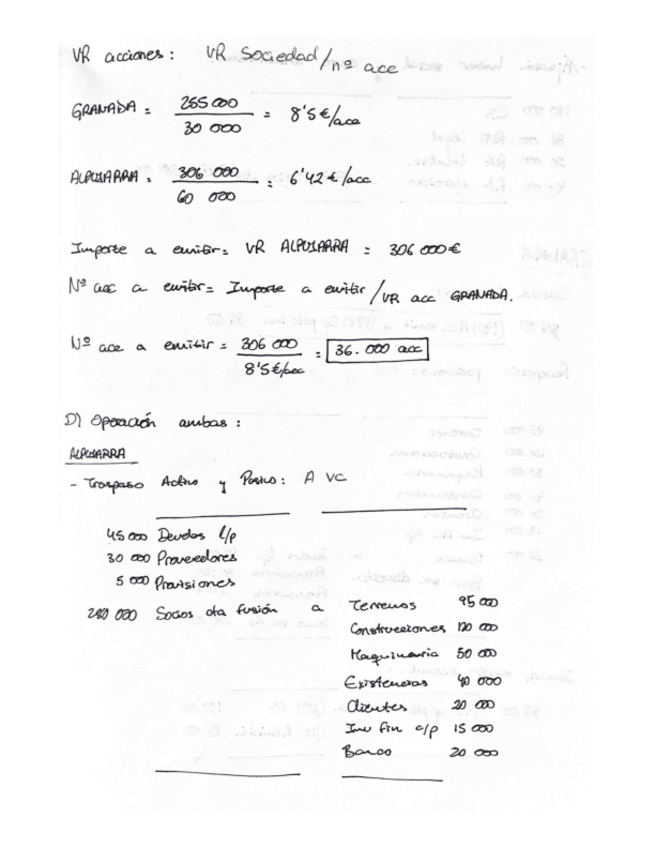 VR acciones: VR Sociedad/nº acc
GRANADA = 255 000 / 30 000 = 8'5 €/acc
ALPUJARRA = 306 000 / 60 000 = 6'42 €/acc
Importe a emitir = VR ALPUJARRA = 306 000 €
Nº acc a emitir = Importe a emitir / VR acc GRANADA.
Nº acc a emitir = 306 000 / 8'5 €/acc = 36.000 acc
D) Operación ambas:
ALPUJARRA
- Traspaso Activo y Pasivo: A VC
45 000 Deudas l/p
30 000 Proveedores
5 000 Provisiones
280 000 Socios cta fusión a Terrenos 95 000
Construcciones 120 000
Maquinaria 50 000
Existencias 40 000
Clientes 20 000
Inv fin c/p 15 000
Banco 20 000